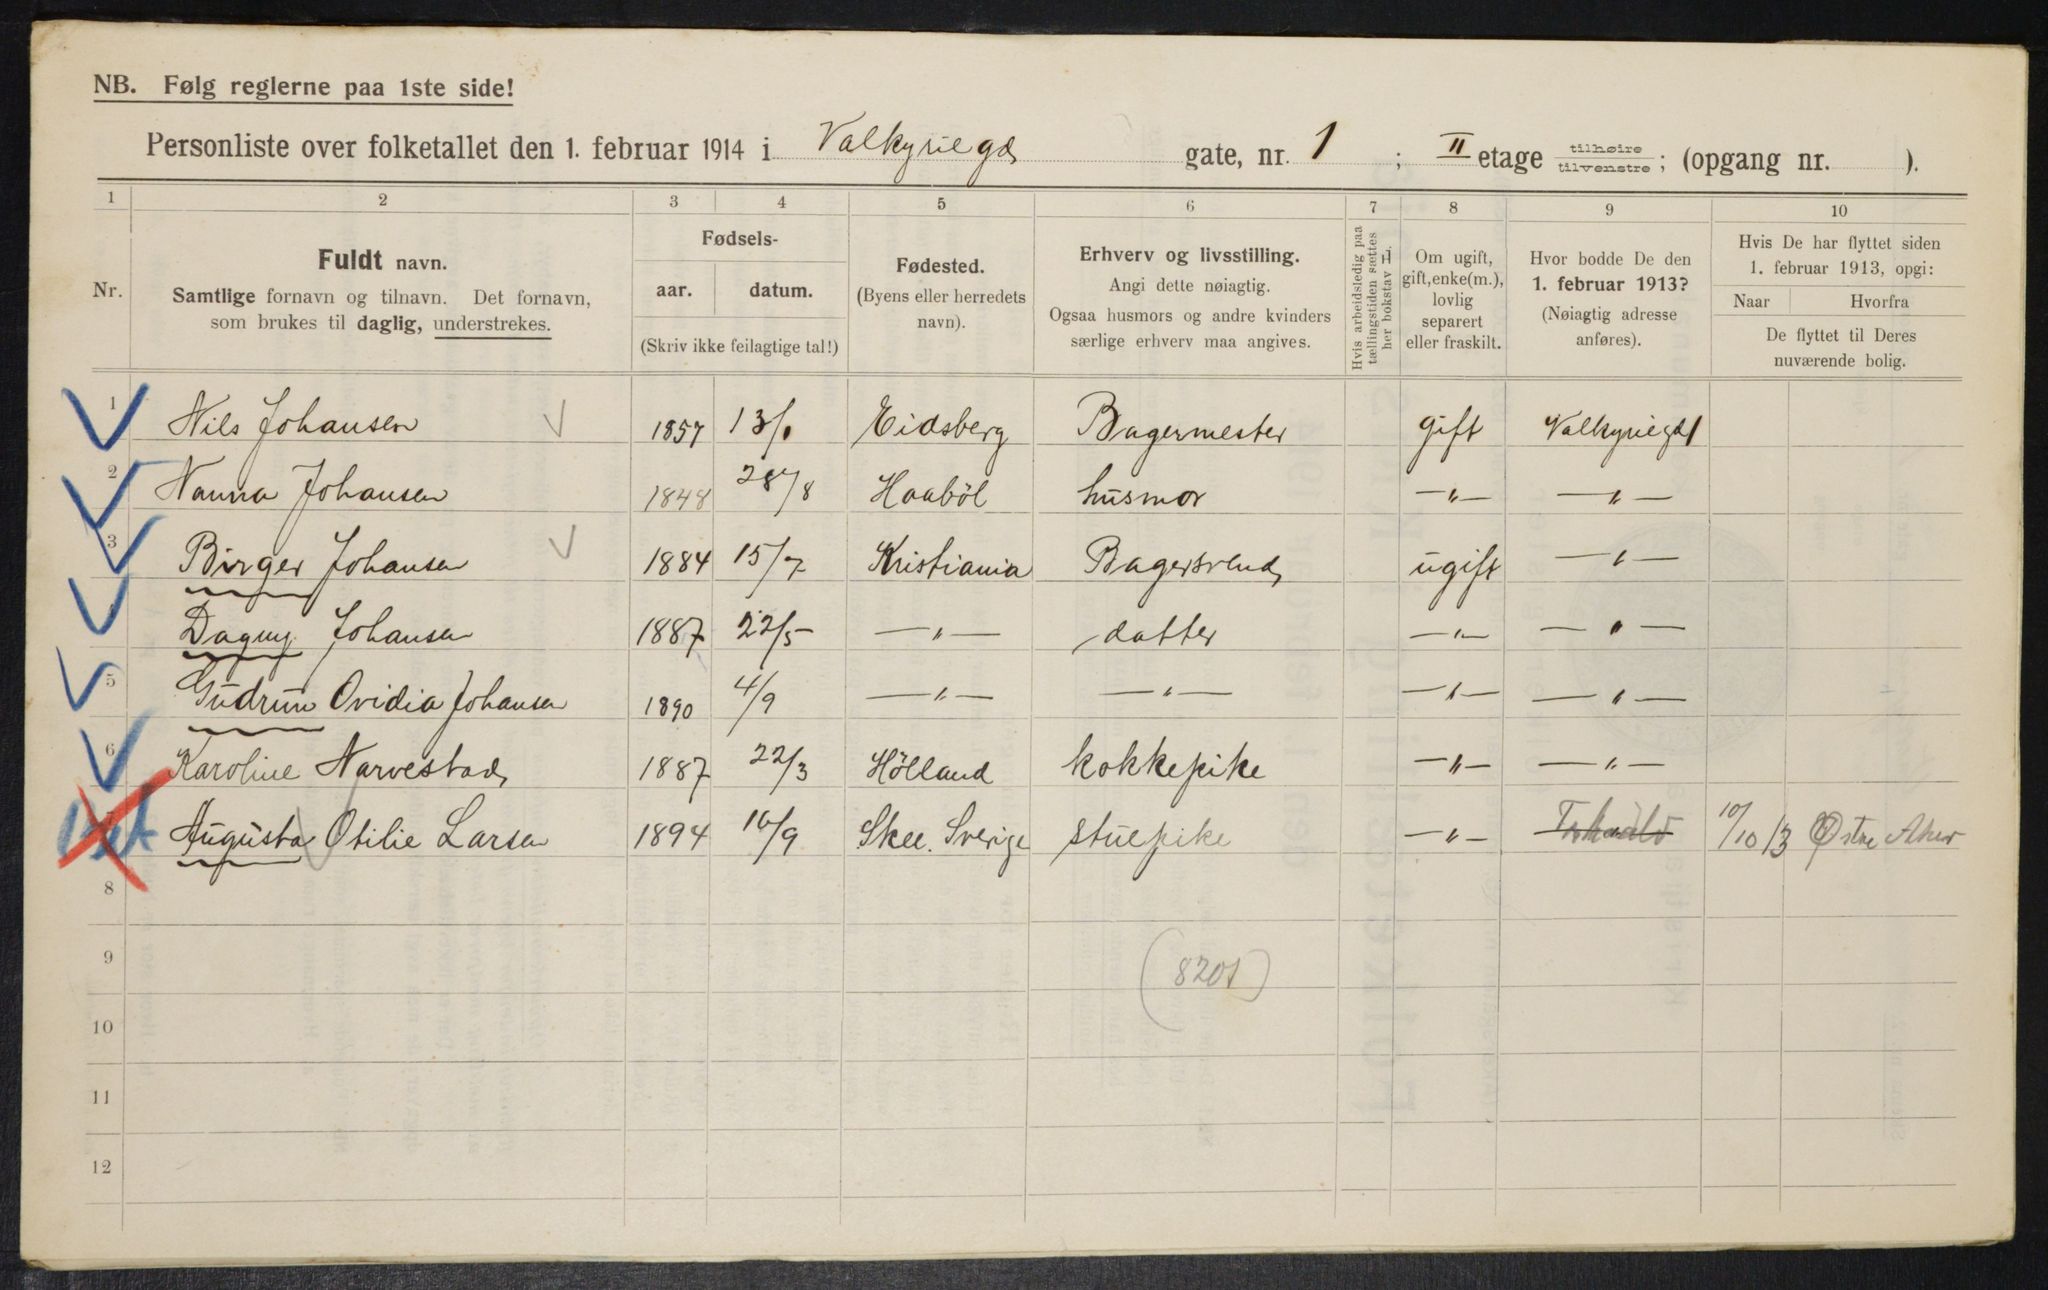 NB. Følg reglerne paa 1ste side!
Personliste over folketallet den 1. februar 1914 i Valkyriegd gate, nr. 1 ; II etage tilhøire/tilvenstre; (opgang nr. ).
1 2 3 4 5 6 7 8 9 10
Nr.
Fuldt navn.
Samtlige fornavn og tilnavn. Det fornavn,
som brukes til daglig, understrekes.
Fødsels-
aar. datum.
(Skriv ikke feilagtige tal!)
Fødested.
(Byens eller herredets
navn).
Erhverv og livsstilling.
Angi dette nøiagtig.
Ogsaa husmors og andre kvinders
særlige erhverv maa angives.
Hvis arbeidsledig paa
tællingstiden sættes
her bokstav L.
Om ugift,
gift, enke(m.),
lovlig
separert
eller fraskilt.
Hvor bodde De den
1. februar 1913?
(Nøiagtig adresse
anføres).
Hvis De har flyttet siden
1. februar 1913, opgi:
Naar Hvorfra
De flyttet til Deres
nuværende bolig.
1 Nils Johansen 1857 Eidsberg Bagermester gift Valkyriegd 1
2 Nanna Johansen 1848 28/8 Haabøl husmor —"— —"—
3 Birger Johansen 1884 15/7 Kristiania Bagersvend ugift —"—
4 Dagny Johansen 1887 22/5 —"— datter —"— —"—
5 Gudrun Ovidia Johansen 1890 4/9 —"— —"— —"— —"—
6 Karoline Narvestad 1887 22/3 Hölland kokkepike —"— —"—
7 Augusta Otilie Larsen 1894 10/9 Skee. Sverige stuepike —"— 10/10 13 Østre Aker
8
9
(8201)
10
11
12